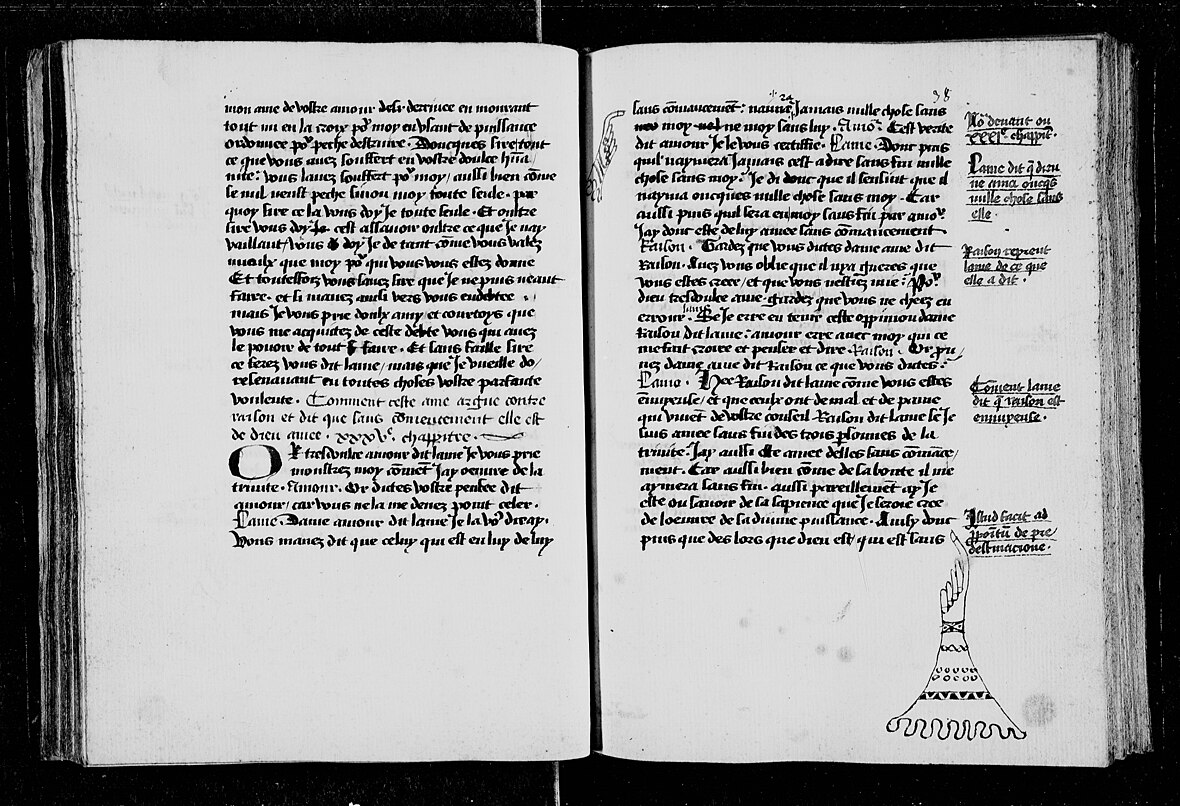 mon ame de vostre amour desir derriuee en mourant
tout nu en la croix po² moy en vsant de puissance
ordonnee po² peche destruire. Doncques sire tout
ce que vous auez souffert en vostre doulce hũa/
nite: vous lauez souffert po² moy/ aussi bien cõme
se nul neust peche sinon moy toute seule. par
quoy sire ce la vous doy Je toute seule. Et oultre
sire vous doy Je cest assauoir oultre ce que Je nay
vaillant/ vous doy Je de tant cõme vous valez
mieulx que moy po² qui vous vous estez donne
Et toutesfois vous sauez sire que Je ne puis neant
faire. et si mauez ainsi vers vous endebtee.
mais Je vous prie doulx amy et courtoys que
vous me acquitez de ceste debte vous qui auez
le pouoir de tout faire. Et sans faille sire
ce serez vous dit lame/ mais que Je vueille do/
resenauant en toutes choses vostre parfaite
voulente. Comment ceste ame argue contre
raison et dit que sans cõmencement elle est
de dieu amee. xxxvᵉ. chappitre.
Or tresdoulce amour dit lame Je vous prie
monstrez moy cõment Jay oeuure de la
trinite. Amour. Or dictes vostre pensee dit
amour/ car vous ne la me deuez point celer.
Lame Dame amour dit lame Je la vo² diray.
Vous mauez dit que celuy qui est en luy de luy
38
sans cõmancement: naura Jamais nulle chose sans
moy ne moy sans luy. Amo². Cest verite
dit amour Je le vous certiffie. Lame. Donc puis
quil naymera Jamais cest a dire sans fin nulle
chose sans moy: Je di donc que il sensuit que il
nayma oncques nulle chose sans moy. Car
aussi puis quil sera en moy sans fin par amo²
Jay donc este de luy amee sans cõmancement
Raison. Gardez que vous dictes dame ame dit
Raison. Auez vous oblie que il nya gueres que
vous estes cree/ et que vous nestiez mie: Po²
dieu tresdoulce ame gardez que vous ne cheez en
erreur. lame Se Je erre en tenir ceste oppinion dame
Raison dit lame: amour erre auec moy qui ce
me fait croire et penser et dire. Raison. Or pru/
uez dame ame dit Raison ce que vous dictes:
Lame. Hee Raison dit lame cõme vous estes
ẽnuyeuse/ et que ceulx ont de mal et de paine
qui viuẽt de vostre conseil Raison dit Lame se Je
suis amee sans fin des trois p̱sonnes de la
trinite: Jay aussi este amee delles sans cõmãce/
ment. Car aussi bien cõme de sa bonte il me
aymera sans fin. aussi pareillement ay Je
este ou sauoir de sa sapience que Je seroie cree
de loeuure de sa diuine puissance. Ainsy donc
puis que des lors que dieu est/ qui est sans
No² deuant ou
xxxıᵉ. chappit².
Lame dit q̃ dieu
ne ama oncq̃s
nulle chose sans
elle.
Raison reprent
lame de ce que
elle a dit.
Cõment lame
dit q̃ raison est
ennuyeuse.
Istud facit ad
de pre
destinacione.